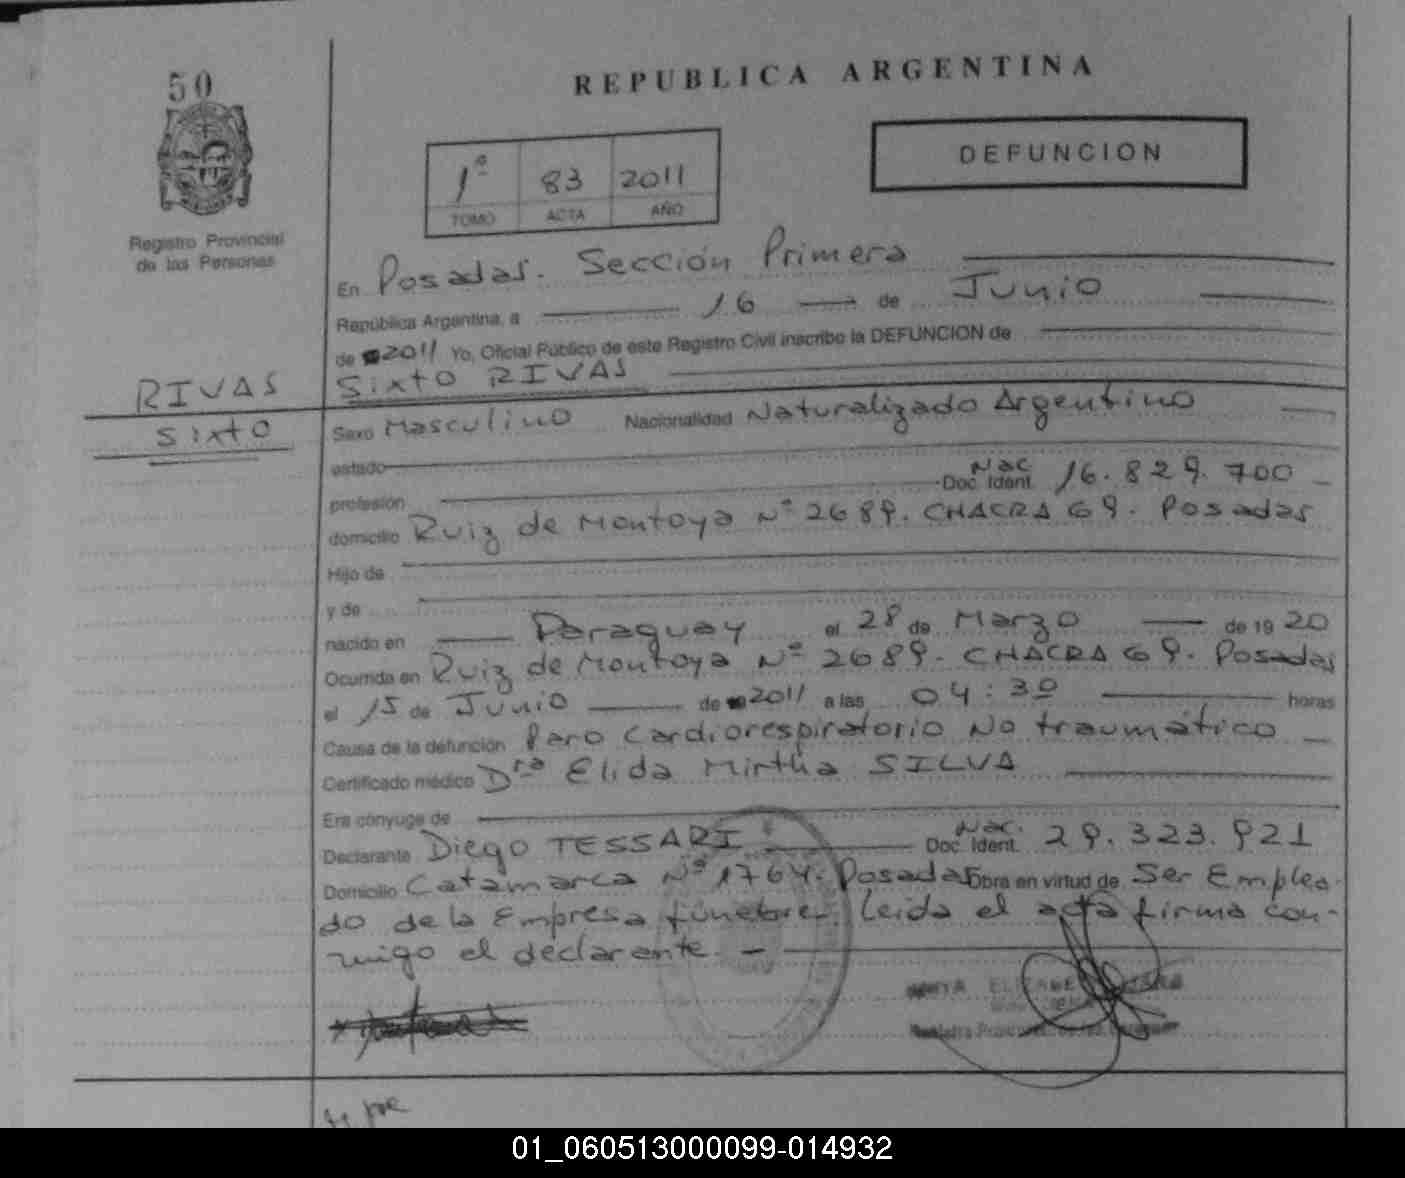 50
REPUBLICA ARGENTINA
DEFUNCION
1ª 83 2011
TOMO ACTA AÑO
Registro Provincial
de las Personas
En Posadas. Sección Primera
República Argentina, a 16 de Junio
de 2011 Yo, Oficial Público de este Registro Civil inscribo la DEFUNCION de
RIVAS
Sixto
Sixto RIVAS
Sexo Masculino Nacionalidad Naturalizado Argentino
estado
profesión Doc. Ident. Nac 16.829.700
domicilio Ruiz de Montoya Nº 2689. CHACRA 69. Posadas
Hijo de
y de
nacido en Paraguay el 28 de Marzo de 1920
Ocurrida en Ruiz de Montoya Nº 2689. CHACRA 69. Posadas
el 15 de Junio de 2011 a las 04:30 horas
Causa de la defunción Paro Cardiorespiratorio No traumático
Certificado médico Dra Elida Mirtha SILVA
Era cónyuge de
Declarante Diego TESSARI Doc. Ident. Nac. 29.323.921
Domicilio Catamarca Nº 1764. Posadas Obra en virtud de Ser Emplea-
do de la Empresa fúnebre. Leida el acta firma con-
migo el declarante. -
01_060513000099-014932